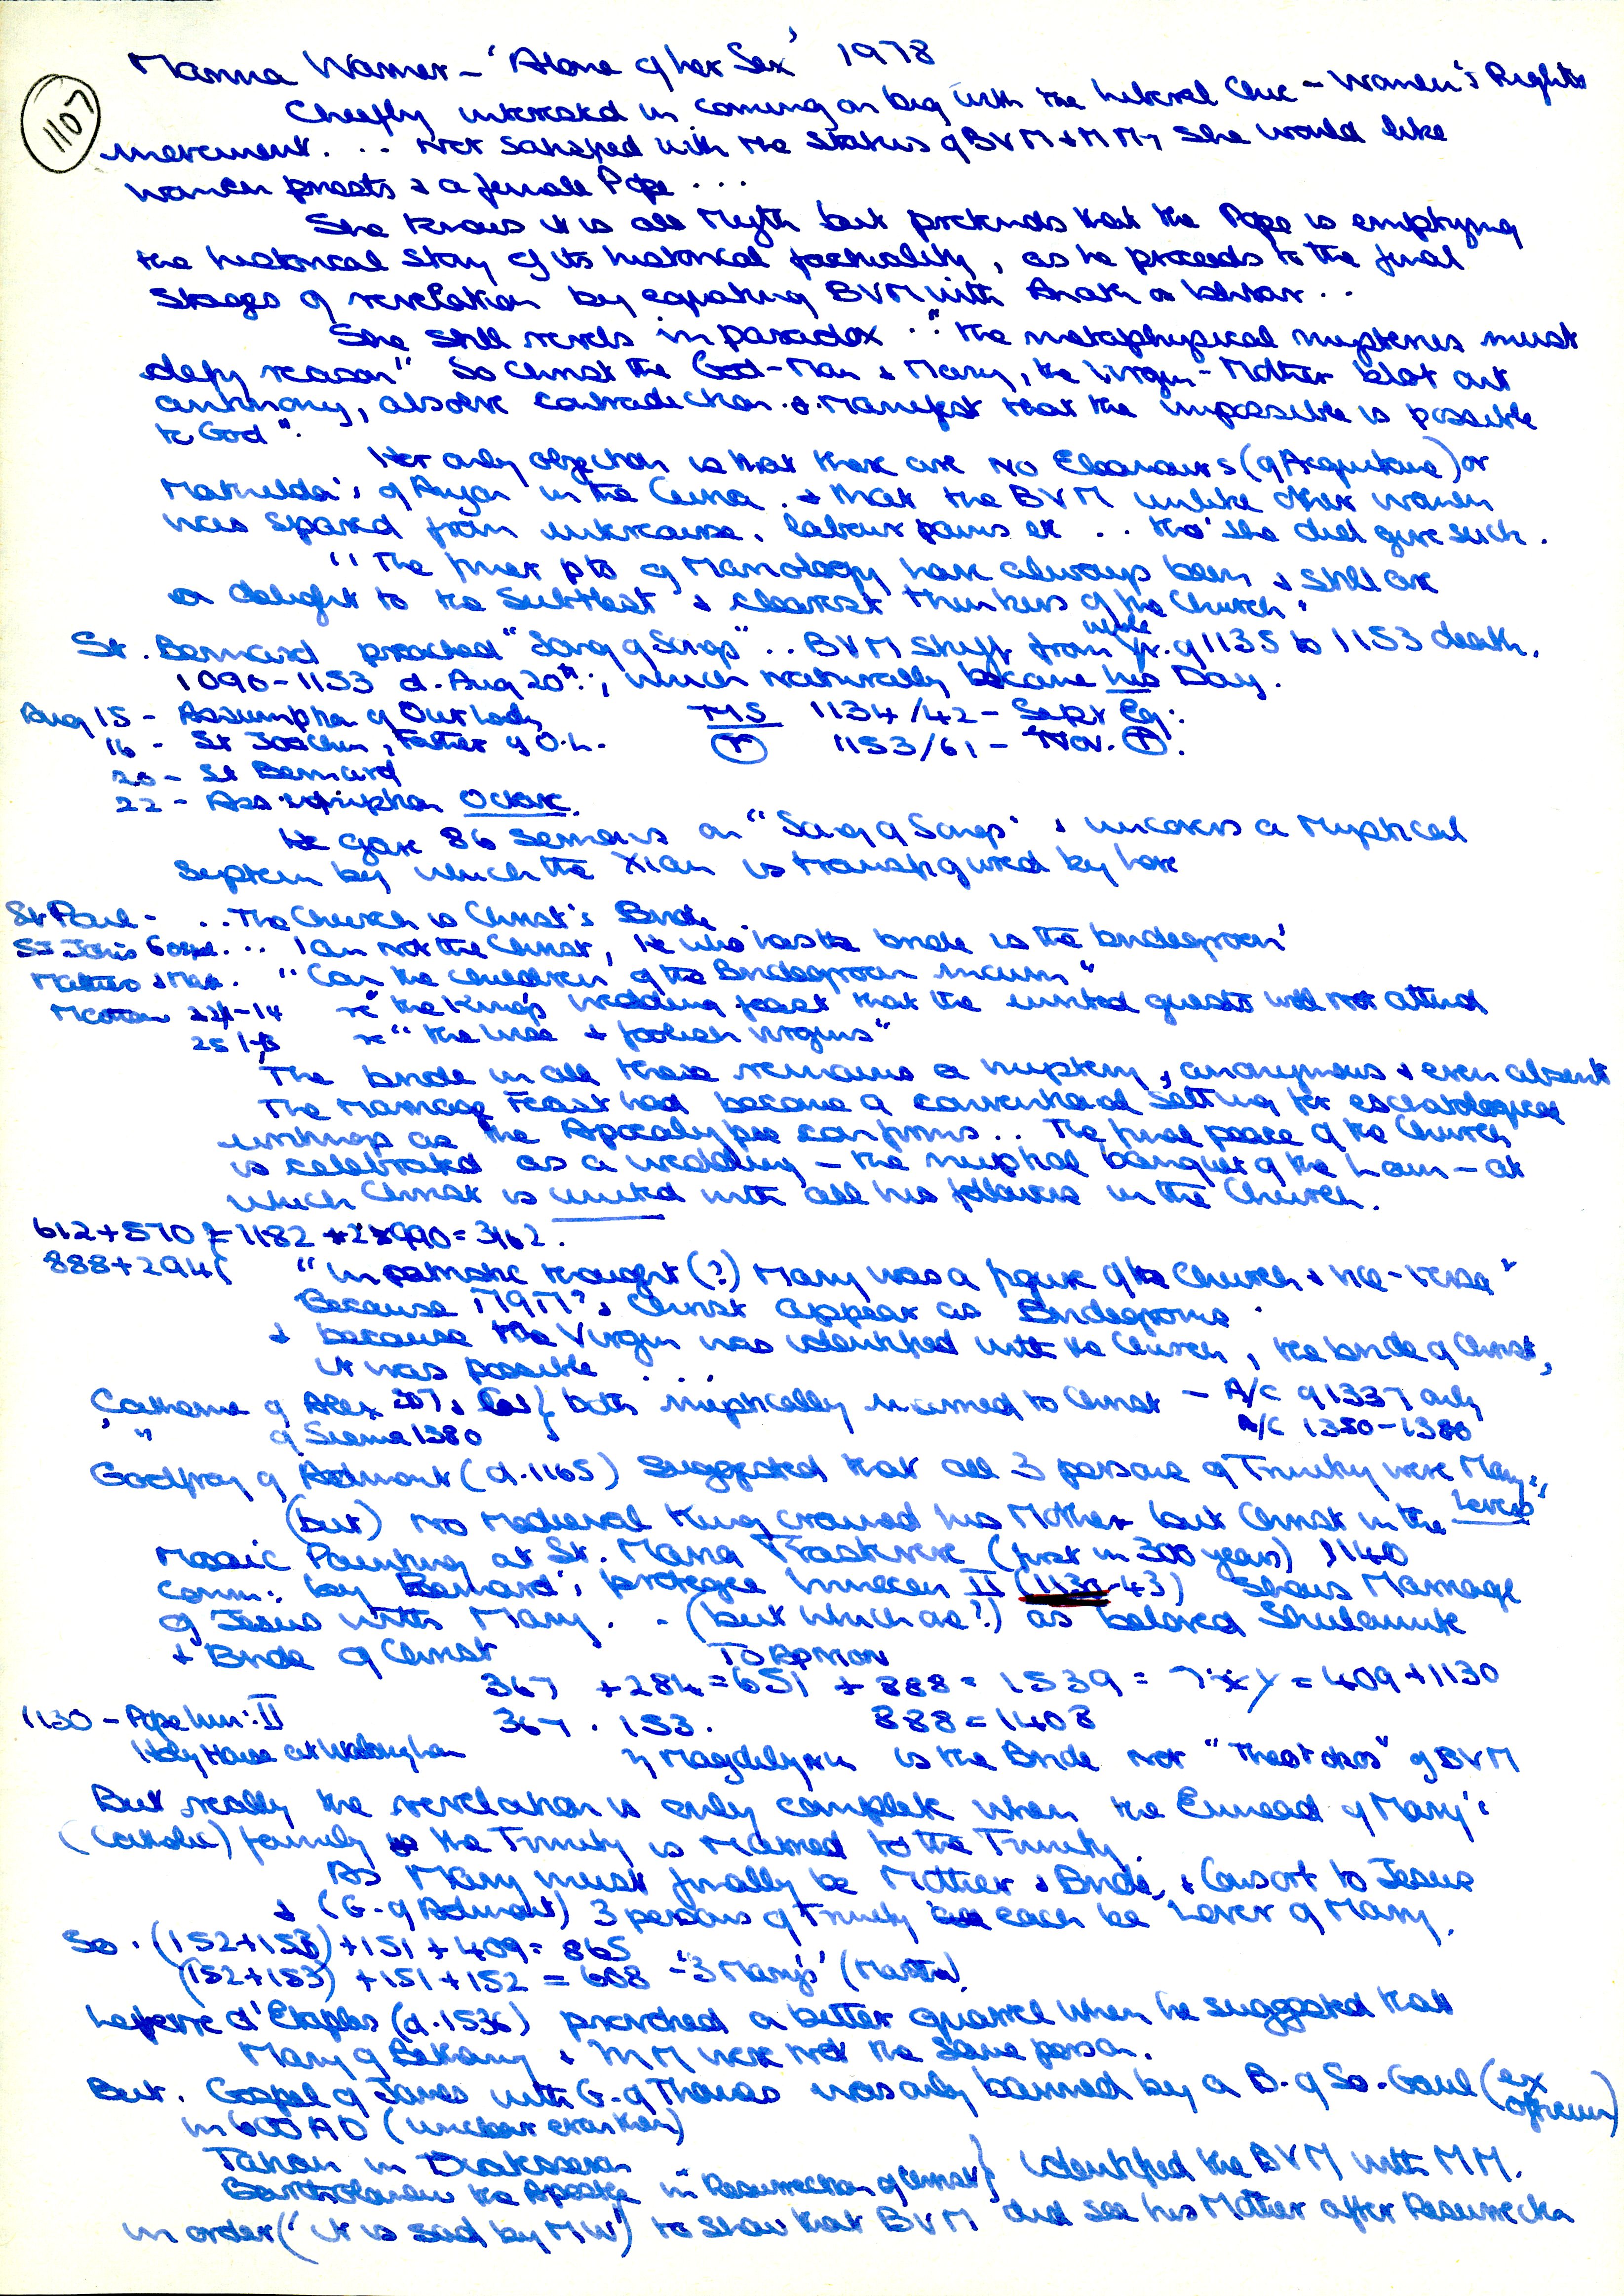 1107
Marina Warner - 'Alone of her Sex' 1978
Cheefly interested in coming on big with the Liberal Chic - Women's Rights
movement. .. Not satisfied with the status of BVM + MM, she would like
women priests & a female Pope ...
She knows it is all Myth but pretends that the Pope is emptying
the historical story of its historical factuality, as he proceeds to the final
stages of revelation by equating BVM with Anath or Ishtar ..
She still revels in paradox .. "the metaphysical mysteries must
defy reason" So Christ the God-Man & Mary, the Virgin-Mother blot out
antinomy, absolve contradiction & manifest that the impossible is possible
to God".
Her only objection is that there are no Eleanours (of Acquitaine) or
Mathilda's of Anjou in the . & that the BVM unlike other women
was spared from intercourse, labour pains etc .. tho' she did give suck.
"The finer pts of Mariology have always been & still are
a delight to the subtlest & clearest thinkers of the Church"
St. Bernard preached "Song of Songs" .. BVM stuff from while Yr. of 1135 to 1153 death.
1090-1153 d. Aug 20th; which naturally became his Day.
Aug 15 - Assumption of Our Lady MS 1134/42 - Sept Eq:
16 - St Joachim, Father of O.L. 1153/61 - Nov.
20 - St Bernard
22 - Assumption Octave.
He gave 86 sermons on "Song of Songs" & uncovers a Mystical
System by which the Xian is transfigured by love
St Paul - .. The Church is Christ's Bride.
St John's Gospel ... I am not the Christ, He who has the bride is the bridegroom'
Matthew & Mark. "Can the children of the Bridegroom mourn"
Matthew 22 1-14 re "the King's wedding feast that the invited guests will not attend
25 1-13 re "the wise & foolish virgins"
The bride in all these remains a mystery, anonymous & even absent
The Marriage Feast had become a conventional setting for eschatological
writings as the Apocalypse confirms .. The final peace of the Church
is celebrated as a wedding - the nuptial banquet of the Lamb - at
which Christ is united with all his followers in the Church.
612+570 = 1182 + 990 = 3162.
888+294
"in patristic thought (?) Mary was a figure of the Church & vice-versa"
Because & Christ appear as Bridegrooms
& because the Virgin was identified with the Church, the bride of Christ,
it was possible ....
Catherine of Alex 307 & both mystically married to Christ - A/C of 1337 only
" of Sienna 1380 A/C 1350-1380
Godfrey of Admont (d.1165) suggested that all 3 persons of Trinity were Mary's
Lovers"
(but) No Medieval King crowned his Mother but Christ in the
Mosaic Painting at St. Maria Trastevere (first in 300 years) 1140
Comm: by Bernard's protegee Innocen II (1130-43) shows Marriage
of Jesus with Mary .. (but which one?) as beloved Shulamite
& Bride of Christ
367 + 284 = 651 + 888 = 1539 = = 409 + 1130
1130 - Pope Inn: II 367 . 153. 888 = 1408
Holy House at Walsingham η Magdelyne is the Bride not "Theotokos" of BVM
But really the revelation is only complete when the Ennead of Mary's
(Catholic) family to the Trinity is Married to the Trinity.
As Mary must finally be Mother & Bride, & Consort to Jesus
& (G. of Admont) 3 persons of Trinity each be Lover of Mary.
So. (152+153) + 151 + 409 = 865
(152+153) + 151 + 152 = 608 - '3 Marys' (Martha)
Lefevre d'Etaples (d.1536) provoked a bitter quarrel when he suggested that
Mary of Bethany & MM were not the same person.
But. Gospel of James with G. of Thomas was only banned by a B. of So. Gaul (ex
officium)
in 600 AD (unclear exaction)
Tatian in Diatesseron
Bartholomew the Apostle in "Resurrection of Christ" } identified the BVM with MM.
in order ('it is said by MW') to show that BVM did see his Mother after Resurrection